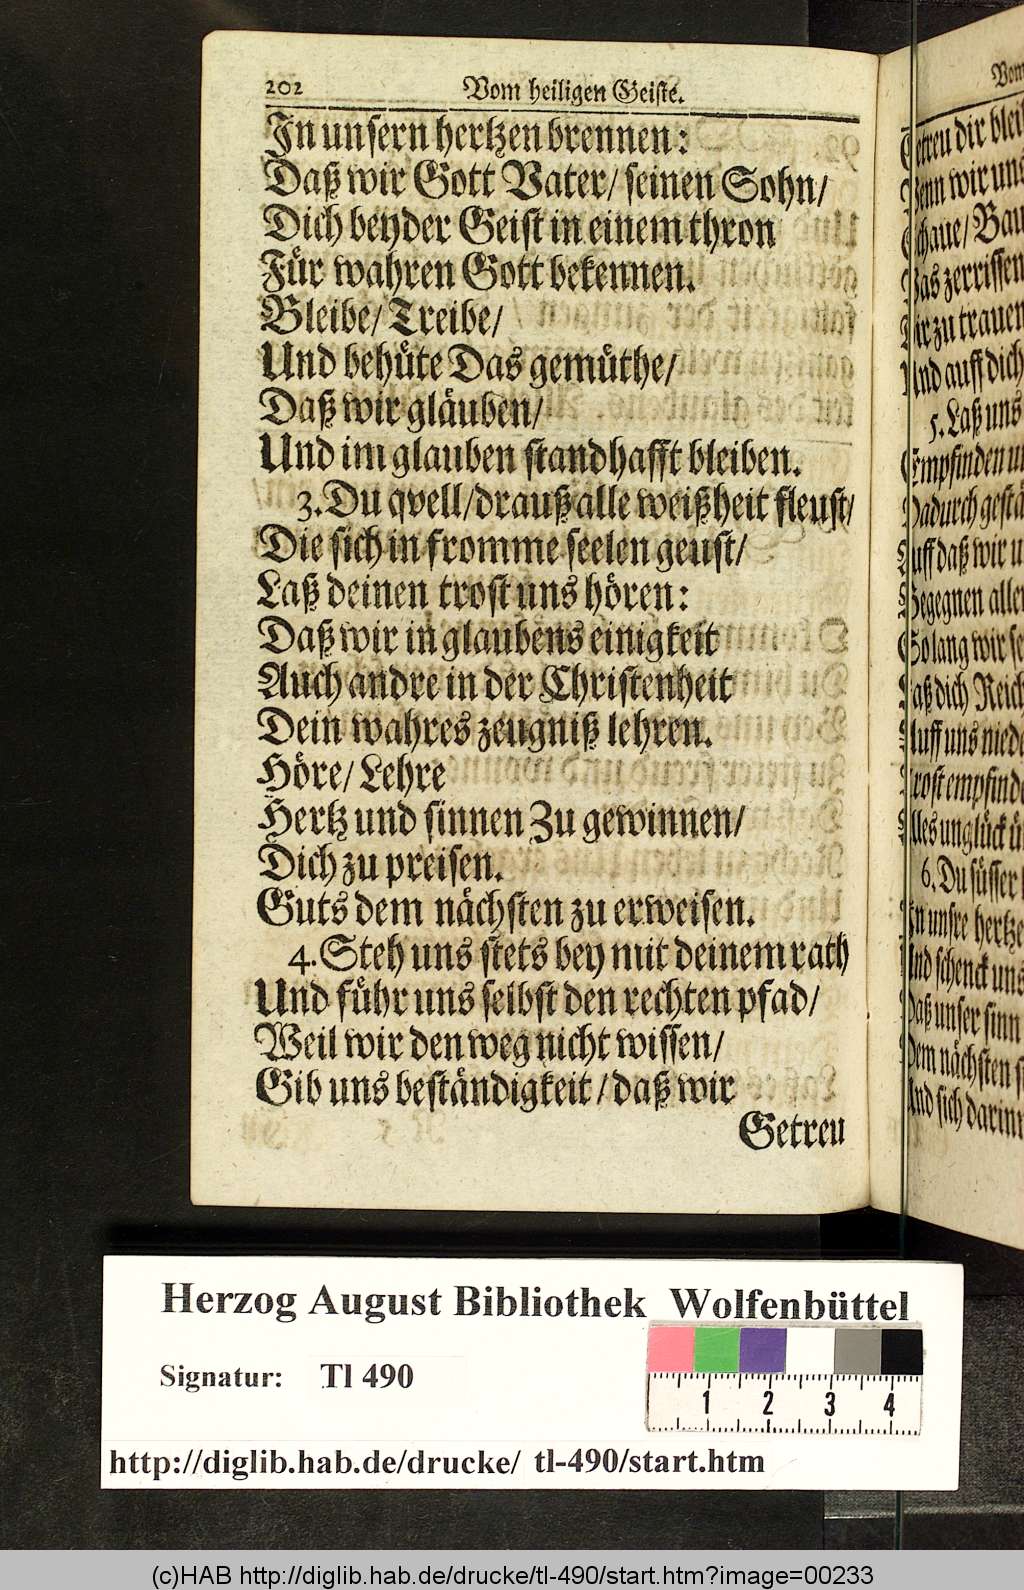 202 Vom heiligen Geiste.
In unsern hertzen brennen:
Daß wir Gott Vater/ seinen Sohn/
Dich beyder Geist in einem thron
Für wahren Gott bekennen.
Bleibe/ Treibe/
Und behüte Das gemüthe/
Daß wir gläuben/
Und im glauben standhafft bleiben.
3. Du qvell/ drauß alle weißheit fleust/
Die sich in fromme seelen geust/
Laß deinen trost uns hören:
Daß wir in glaubens einigkeit
Auch andre in der Christenheit
Dein wahres zeugniß lehren.
Höre/ Lehre
Hertz und sinnen Zu gewinnen/
Dich zu preisen.
Guts dem nächsten zu erweisen.
4. Steh uns stets bey mit deinem rath
Und führ uns selbst den rechten pfad/
Weil wir den weg nicht wissen/
Gib uns beständigkeit/ daß wir
Getreu
Vom
Getreu dir blei
Wenn wir uns
Schaue/ Bau
Was zerrissen
Dir zu trauen
Und auff dich
5. Laß uns
Empfinden un
Dadurch gestä
Auff daß wir u
Begegnen aller
So lang wir se
Laß dich Reich
Auff uns niede
Trost empfinde
Alles unglück ü
6. Du süsser
In unsre hertze
Und schenck uns
Daß unser sinn
Dem nächsten s
Und sich darinn
Herzog August Bibliothek Wolfenbüttel
Signatur: Tl 490
1 2 3 4
http://diglib.hab.de/drucke/ tl-490/start.htm
(c)HAB http://diglib.hab.de/drucke/tl-490/start.htm?image=00233